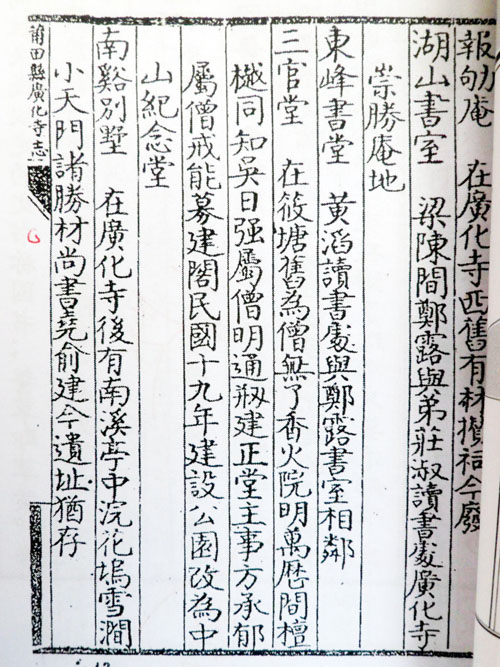 報劬庵　在廣化寺西舊有林攢祠今廢
湖山書室　梁陳間鄭露與弟莊淑讀書處廣化寺
崇勝庵地
東峰書堂　黃滔讀書處與鄭露書室相鄰
三官堂　在筱塘舊為僧無了香火院明萬曆間檀
樾同知吳日強屬僧明通刱建正堂主事方承郁
屬僧戒能募建閣民國十九年建設公園改為中
山紀念堂
南谿別墅　在廣化寺後有南溪亭中浣花塢雪澗
小天門諸勝林尚書堯俞建今遺址猶存
莆田縣廣化寺志